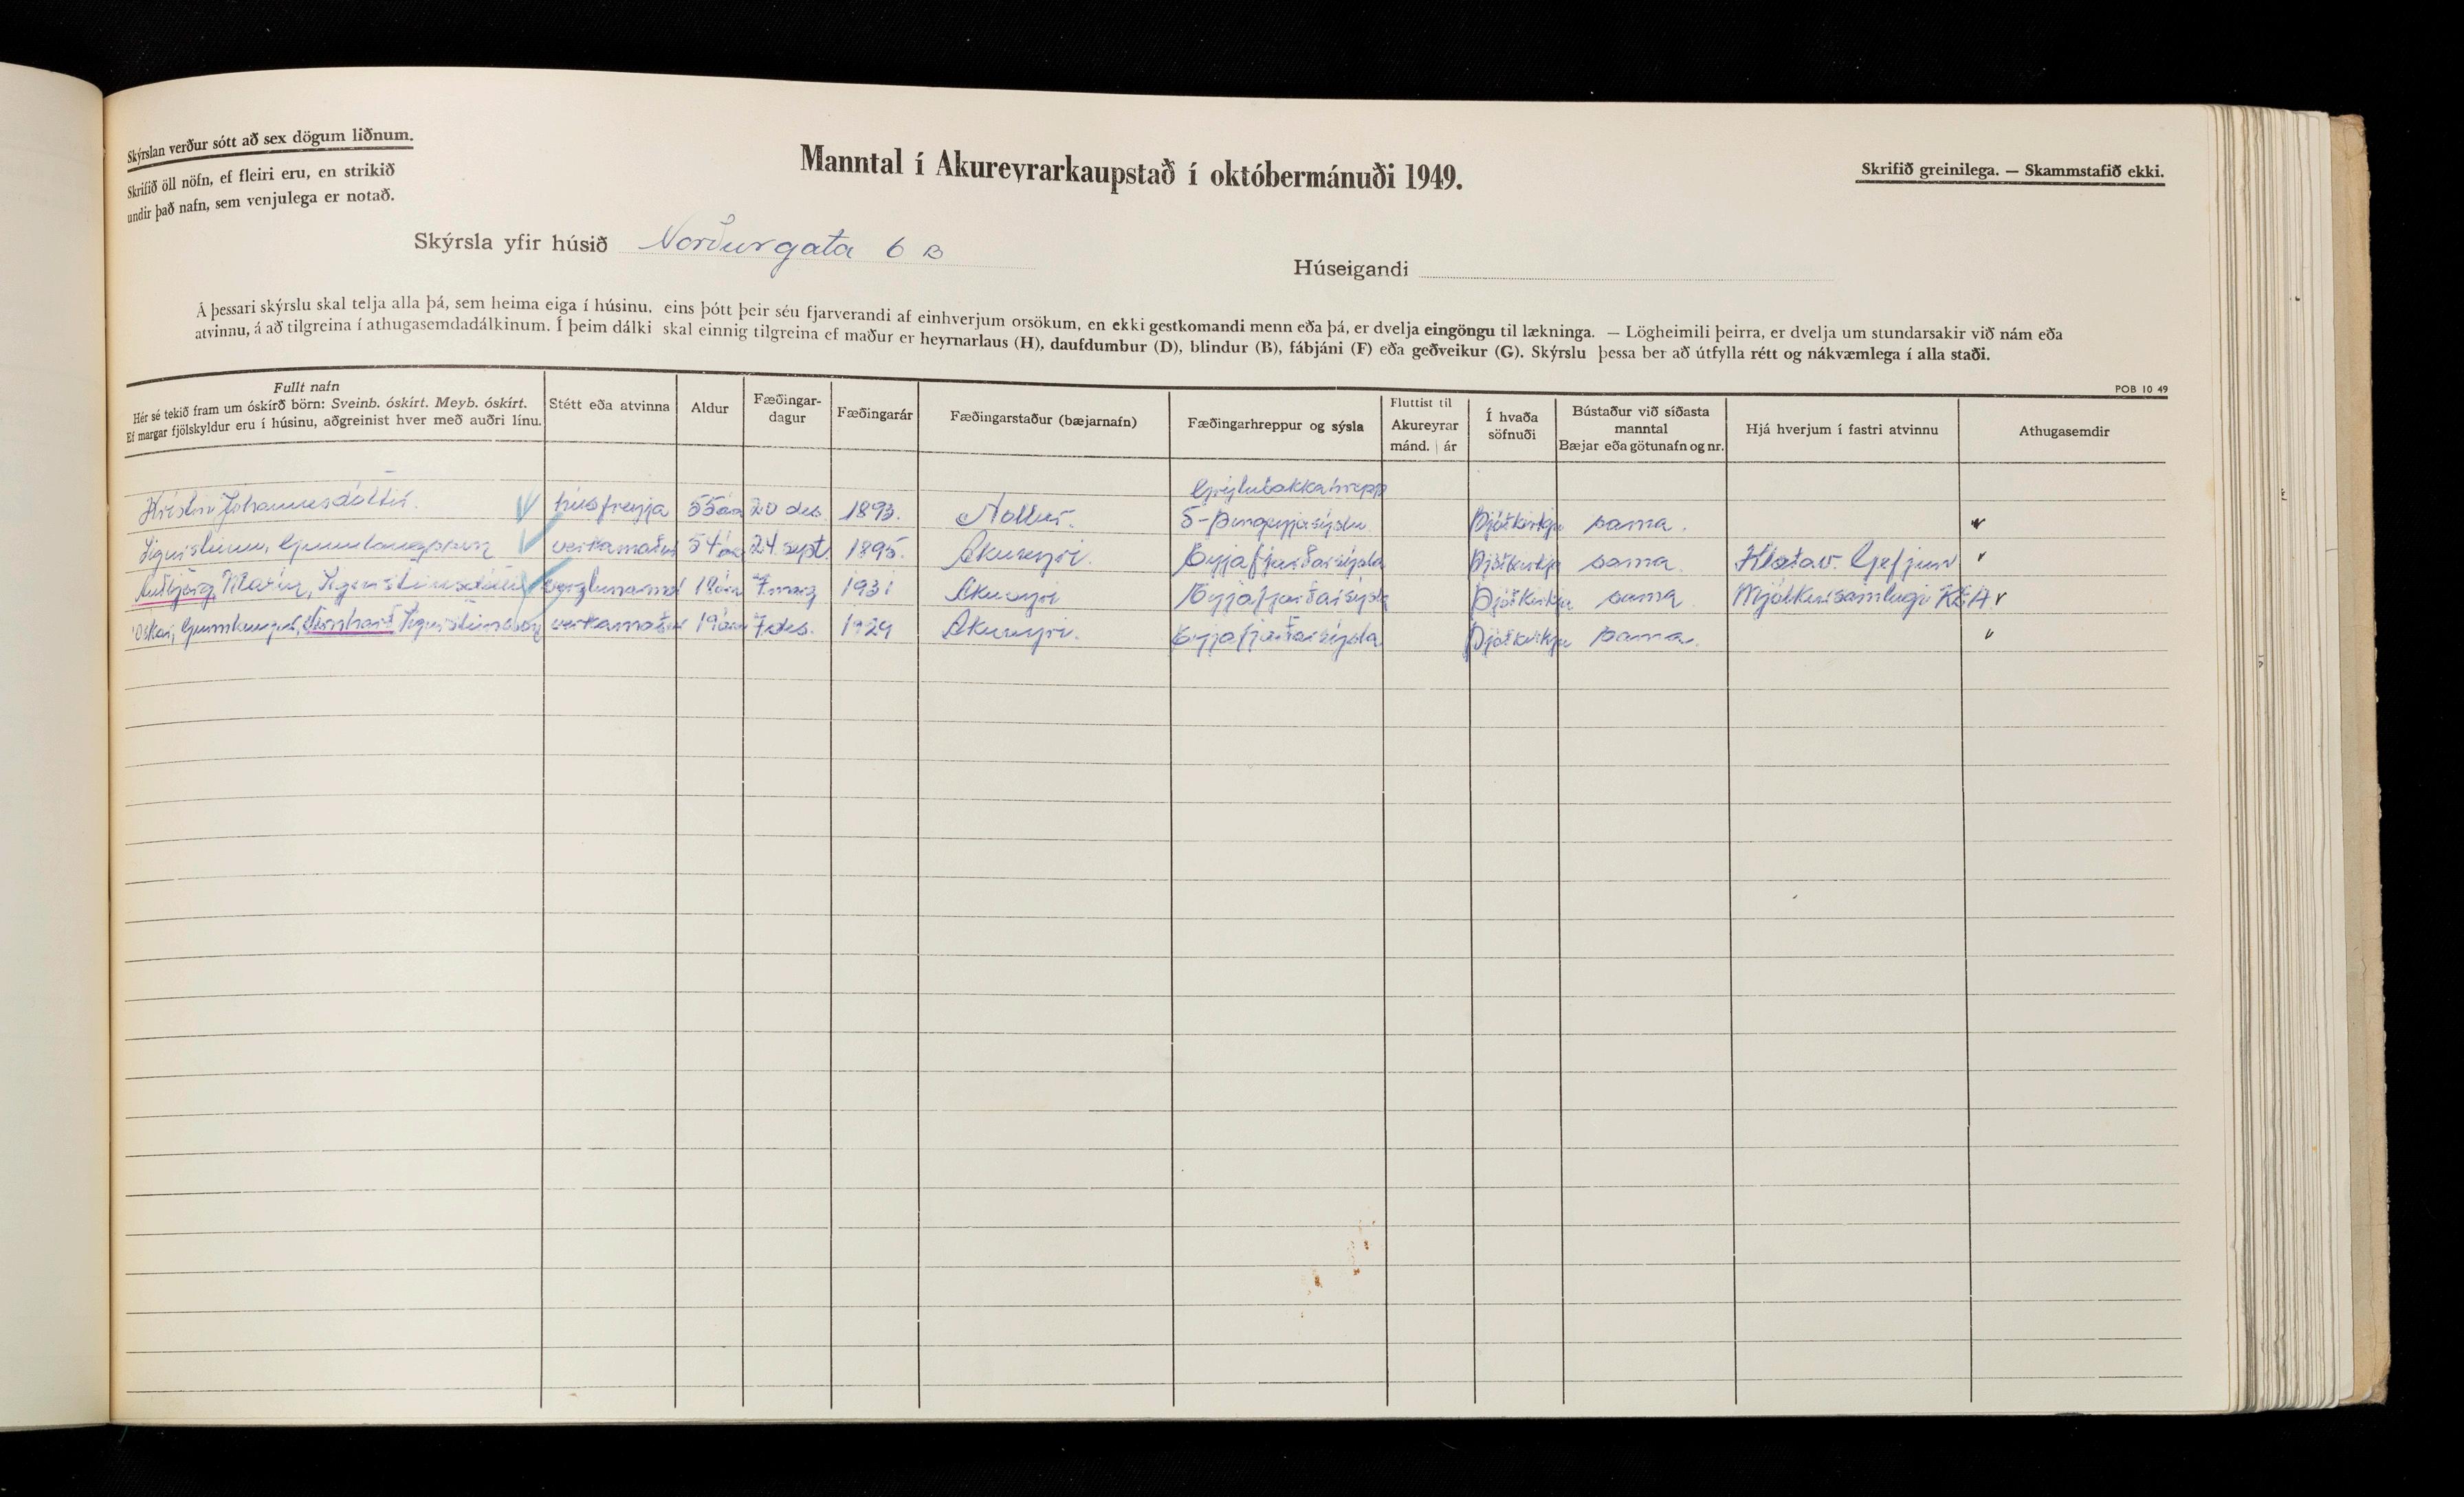 Skýrslan verður sótt að sex dögum liðnum.
Skrifið öll nöfn, ef fleiri eru, en strikið
undir það nafn, sem venjulega er notað.
Manntal í Akureyrarkaupstað í októbermánuði 1949.
Skrifið greinilega. — Skammstafið ekki.
Skýrsla yfir húsið Norðurgata 6 B
Húseigandi
Á þessari skýrslu skal telja alla þá, sem heima eiga í húsinu, eins þótt þeir séu fjarverandi af einhverjum orsökum, en ekki gestkomandi menn eða þá, er dvelja eingöngu til lækninga. — Lögheimili þeirra, er dvelja um stundarsakir við nám eða
atvinnu, á að tilgreina í athugasemdadálkinum. Í þeim dálki skal einnig tilgreina ef maður er heyrnarlaus (H), daufdumbur (D), blindur (B), fábjáni (F) eða geðveikur (G). Skýrslu þessa ber að útfylla rétt og nákvæmlega í alla staði.
POB 10 49
Fullt nafn
Hér sé tekið fram um óskírð börn: Sveinb. óskírt. Meyb. óskírt.
Ef margar fjölskyldur eru í húsinu, aðgreinist hver með auðri línu.
Stétt eða atvinna
Aldur
Fæðingar-
dagur
Fæðingarár
Fæðingarstaður (bæjarnafn)
Fæðingarhreppur og sýsla
Fluttist til
Akureyrar
mánd. | ár
Í hvaða
söfnuði
Bústaður við síðasta
manntal
Bæjar eða götunafn og nr.
Hjá hverjum í fastri atvinnu
Athugasemdir
Grýtubakkahrepp
Kristín Jóhannesdóttir. húsfreyja 55 ára 20 des. 1893. Nollur. S-Þingeyjasýslu Þjóðkirkju sama.
Sigursteinn, Gunnlaugsson verkamaður 54 ára 24. sept. 1895. Akureyri. Eyjafjarðarsýsla Þjóðkirkju sama. Klæðav. Gefjun
Auðbjörg, María, Sigursteinsdóttir verzlunarmær 18 ára 7 marz 1931 Akureyri Eyjafjarðarsýsla Þjóðkirkja sama Mjólkursamlagi KEA
Óskar, Gunnlaugur, Bernharð Sigursteinsson verkamaður 19 ára 7 des. 1929 Akureyri. Eyjafjarðarsýsla Þjóðkirkju sama.